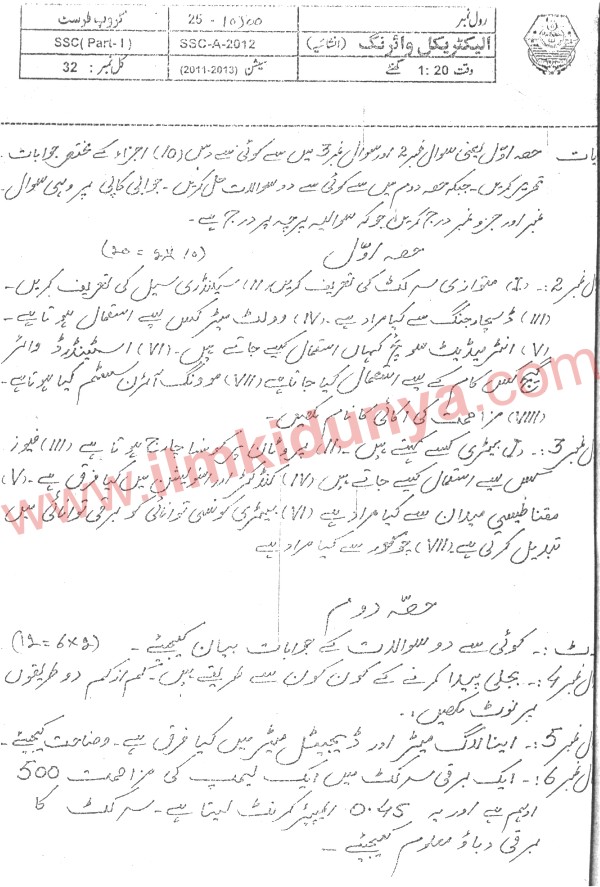 رول نمبر 25-10300 گروپ فرسٹ
الیکٹریکل وائرنگ (انشائیہ) SSC-A-2012 SSC( Part- I )
وقت 1:20 گھنٹے سیشن (2011-2013) کل نمبر : 32
حصہ اوّل یعنی سوال نمبر 2 اور سوال نمبر 3 میں سے کوئی سے دس (10) اجزاء کے مختصر جوابات
تحریر کریں۔ جبکہ حصہ دوم میں سے کوئی سے دو سوالات حل کریں۔ جوابی کاپی پر وہی سوال
نمبر اور جزو نمبر درج کریں جو کہ سوالیہ پرچہ پر درج ہے۔
حصہ اوّل (20 = 2x10)
ل نمبر 2:۔ (I) متوازی سرکٹ کی تعریف کریں۔ (II) سیکنڈری سیل کی تعریف کریں۔
(III) ڈسچارجنگ سے کیا مراد ہے۔ (IV) وولٹ میٹر کس لیے استعمال ہوتا ہے۔
(V) انٹرمیڈیٹ سوئچ کہاں استعمال کیے جاتے ہیں۔ (VI) اسٹینڈرڈ وائر
گیج کس کام کے لیے استعمال کیا جاتا ہے (VII) موونگ آئرن سسٹم کیا ہوتا ہے۔
(VIII) مزاحمت کی اکائی کا نام لکھیں۔
ل نمبر 3:۔ (I) بیٹری کسے کہتے ہیں۔ (II) پروٹان پر کونسا چارج ہوتا ہے (III) فیوز
کس لیے استعمال کیے جاتے ہیں (IV) کنڈکٹر اور انسولیشن میں کیا فرق ہے۔ (V)
مقناطیسی میدان سے کیا مراد ہے (VI) بیٹری کونسی توانائی کو برقی توانائی میں
تبدیل کرتی ہے۔ (VII) سے کیا مراد ہے
حصہ دوم
کوئی سے دو سوالات کے جوابات بیان کیجیئے۔ (12=6x2)
ل نمبر 4:۔ بجلی پیدا کرنے کے کون کون سے طریقے ہیں۔ کم از کم دو طریقوں
پر نوٹ لکھیں۔
ل نمبر 5:۔ اینالاگ میٹر اور ڈیجیٹل میٹر میں کیا فرق ہے۔ وضاحت کیجیئے۔
ل نمبر 6:۔ ایک برقی سرکٹ میں ایک لیمپ کی مزاحمت 500
اوہم ہے اور یہ 0.45 ایمپیئر کرنٹ لیتا ہے۔ سرکٹ کا
برقی دباؤ معلوم کیجیئے۔
www.ilmkidunya.com